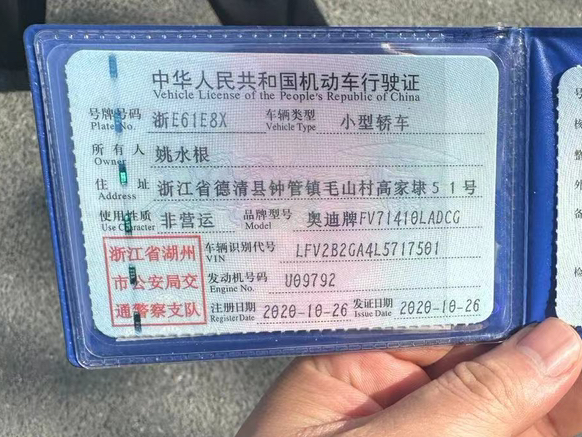 中华人民共和国机动车行驶证
Vehicle License of the People's Republic of China
号牌号码 浙E61E8X 车辆类型 小型轿车
Plate No. Vehicle Type
所有人 姚水根
Owner
住址 浙江省德清县钟管镇毛山村高家埭51号
Address
使用性质 非营运 品牌型号 奥迪牌FV71410LADCG
Use Character Model
浙江省湖州
市公安局交
通警察支队
车辆识别代号 LFV2B2GA4L5717501
VIN
发动机号码 U09792
Engine No.
注册日期 2020-10-26 发证日期 2020-10-26
Register Date Issue Date